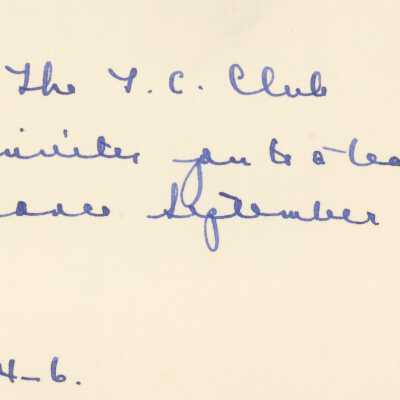 The T. C. Club
invites you to a tea
dance September
4-6.